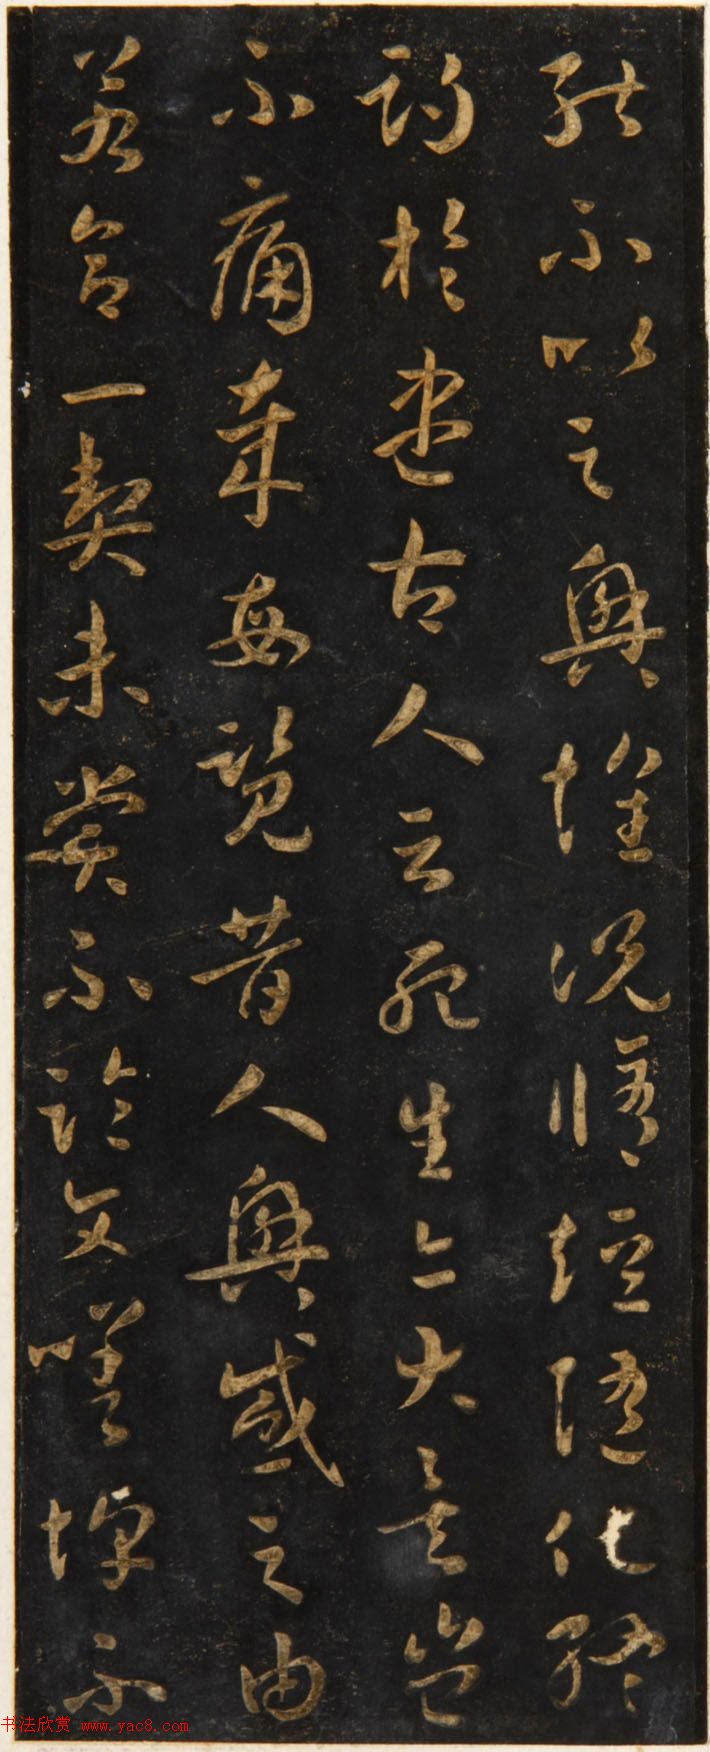 能不以之興懷況脩短隨化終
期於盡古人云死生亦大矣豈
不痛哉每覽昔人興感之由
若合一契未嘗不臨文嗟悼不
书法欣赏 www.yac8.com